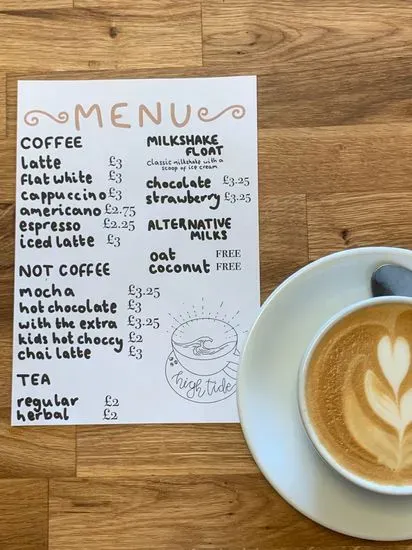 MENU
COFFEE
latte £3
flat white £3
cappuccino £3
americano £2.75
espresso £2.25
iced latte £3
NOT COFFEE
mocha £3.25
hot chocolate £3
with the extra £3.25
kids hot choccy £2
chai latte £3
TEA
regular £2
herbal £2
MILKSHAKE
FLOAT
classic milkshake with a
scoop of ice cream
chocolate £3.25
strawberry £3.25
ALTERNATIVE
MILKS
oat FREE
coconut FREE
high tide